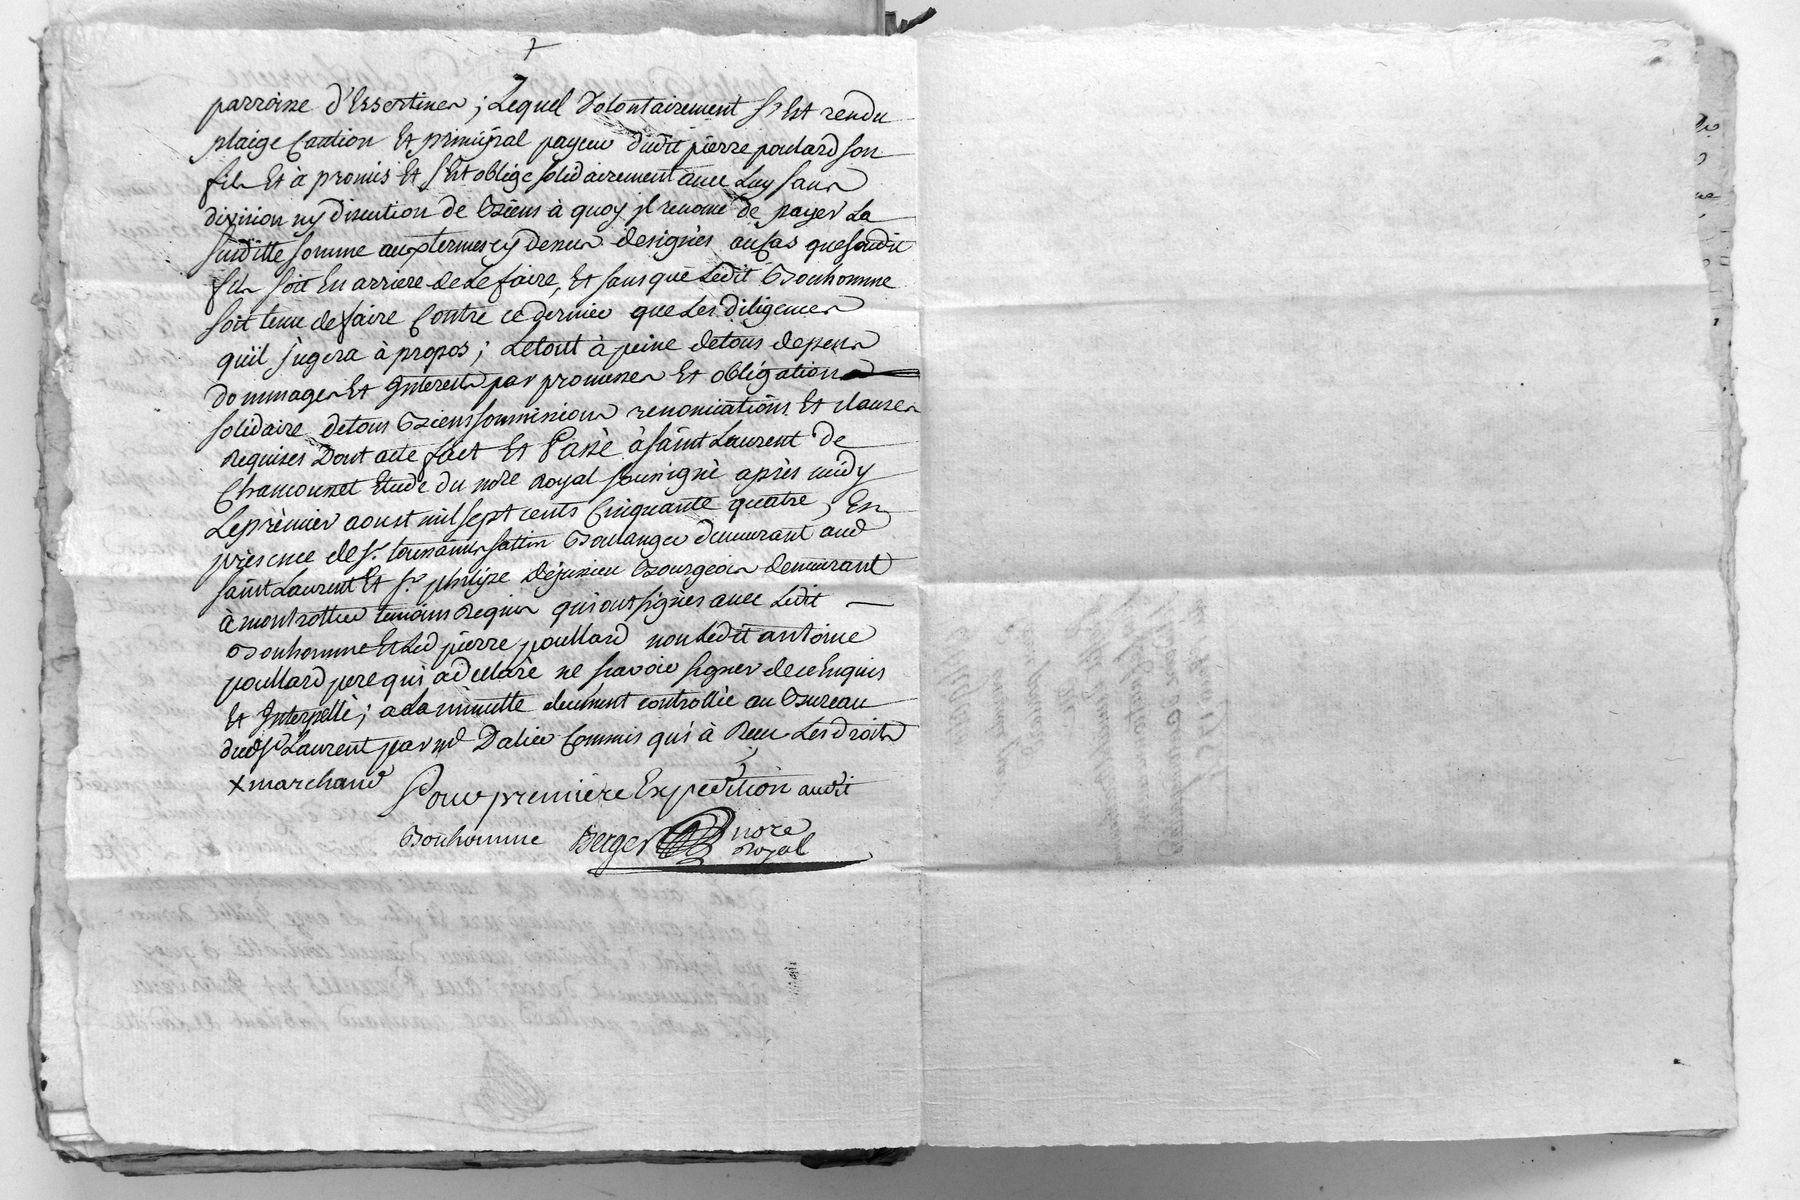 parroisse d'Essertines ; Lequel volontairement s'Est rendu
plaige Caution Et principal payeur dudit pierre poulard son
fils Et à promis Et s'Est obligé solidairement avec Luy sans
division ny discution de Biens à quoy jl renonce de payer La
susditte somme aux termes cy dessus designés au Cas que sondit
fils soit En arriere de Le faire, Et sans que Ledit Bonhomme
soit tenu de faire Contre ce dernier que Les diligences
quil jugera à propos ; Le tout à peine de tous depens
dommages Et Interests par promesses Et obligations
solidaire de tous Biens soumissions renonciations Et clauses
Requises Dont acte fait Et Passé à saint Laurent de
Chamousset Etude du nore Royal soussigné après midy
Le prèmier aoust mil sept cents Cinquante quatre, En
présence de sr. toussaint Boulanger demeurant aud
saint Laurent Et sr. philipe dejussieu Bourgeois demeurant
à montrottier temoins Requis qui ont signés avec Ledit
Bonhomme Et Led pierre poullard non Ledit antoine
poullard pere qui à déclaré ne sçavoir signer de ce Enquis
Et Interpellé ; a la minutte duement controllée au Bureau
dud st Laurent par me Dalier Commis qui à Reçu Les droits
x marchand
Pour premiere Expédition audit
Bonhomme Berger nore
Royal